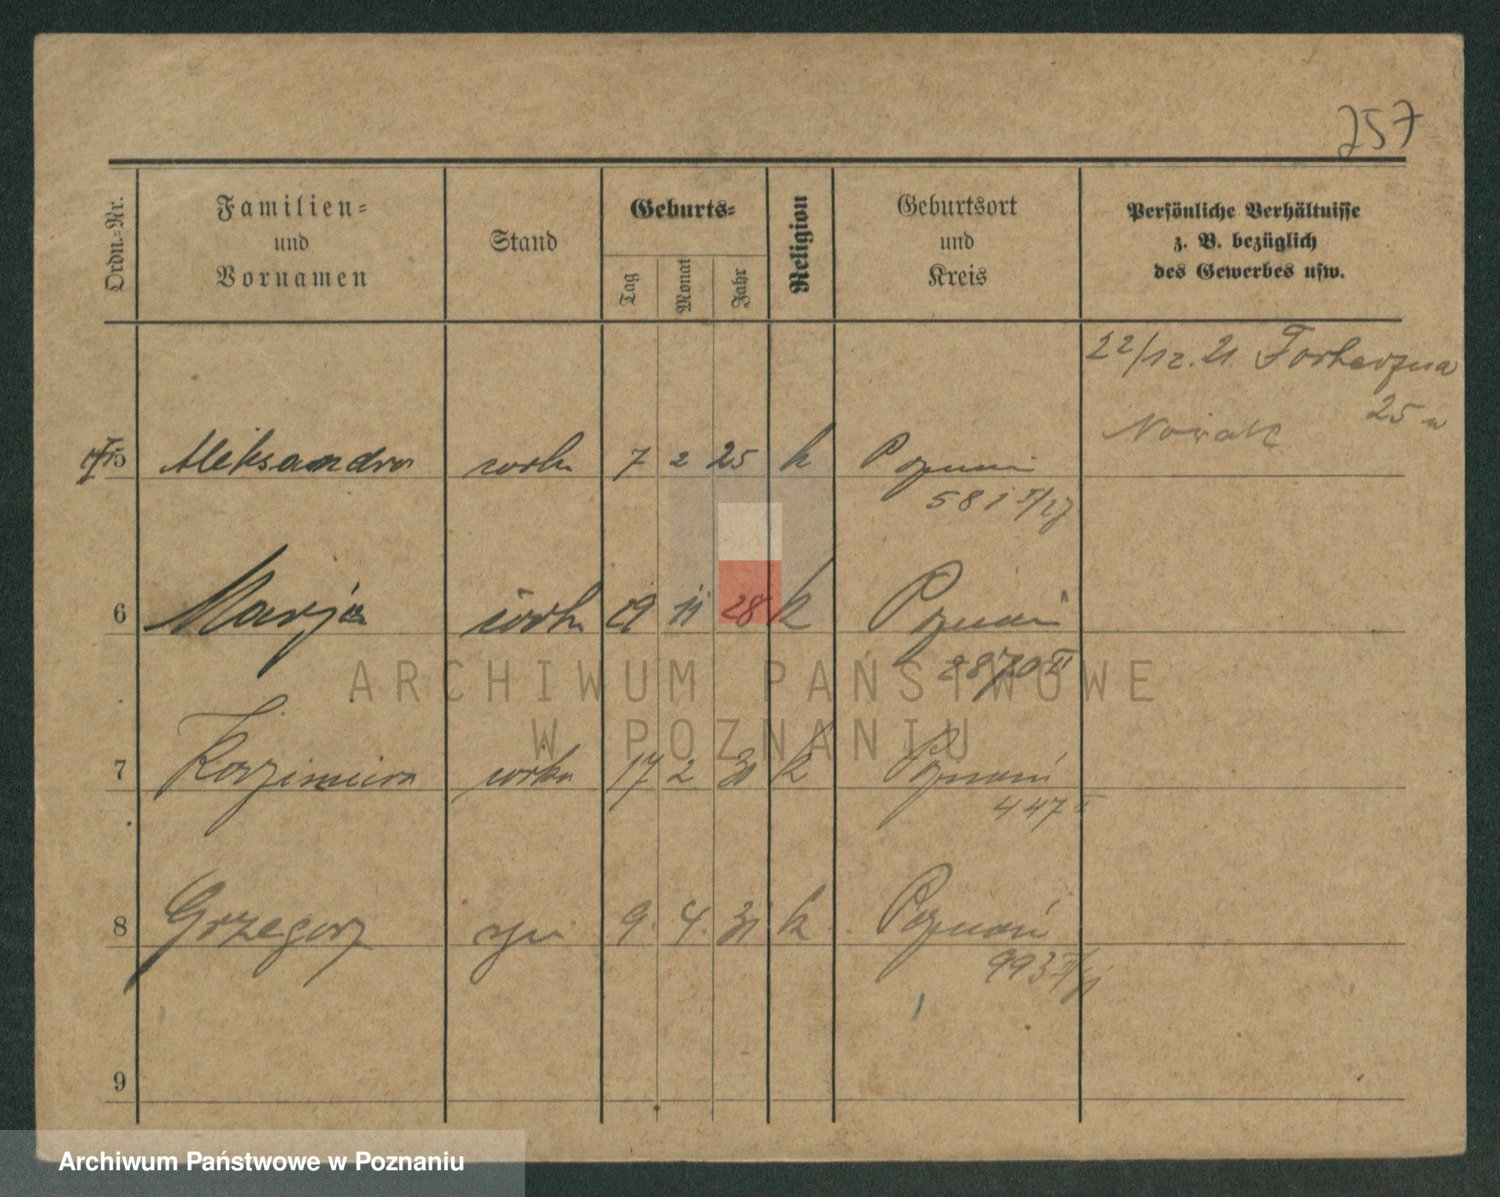 257
Ordn.-Nr.
Familien-
und
Vornamen
Stand
Geburts-
Tag
Monat
Jahr
Religion
Geburtsort
und
Kreis
Persönliche Verhältnisse
z. B. bezüglich
des Gewerbes usw.
22/12. 21.
25
Nowak
5 Aleksandra córka 7 2 25 k Poznań
581 II/27
6 Marja córka 29 11 28 k Poznań
2870 II
7 Kazimiera córka 17 2 30 k Poznań
447 II
8 Grzegorz syn 9. 4. 31 k Poznań
993
9
ARCHIWUM PAŃSTWOWE
W POZNANIU
Archiwum Państwowe w Poznaniu